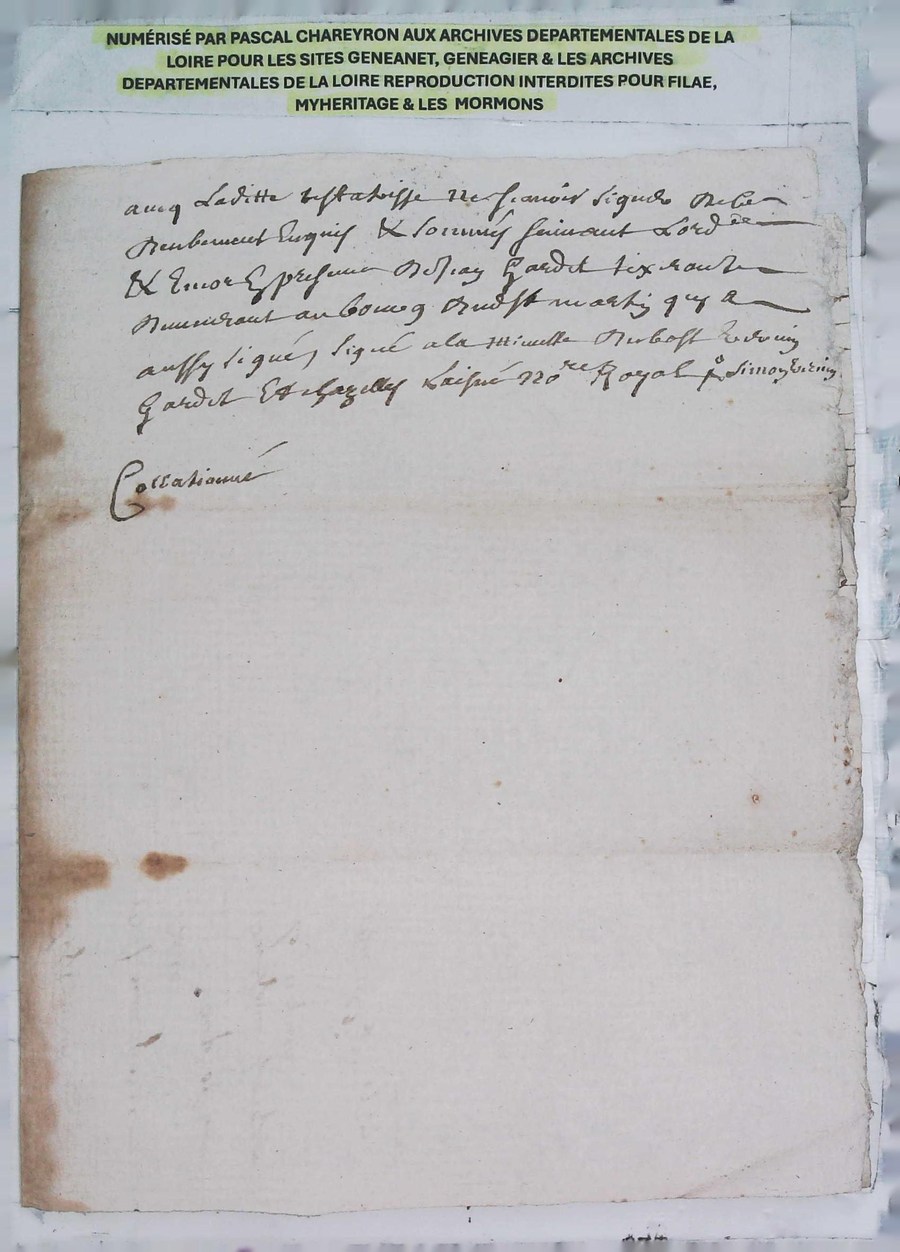 NUMÉRISÉ PAR PASCAL CHAREYRON AUX ARCHIVES DEPARTEMENTALES DE LA
LOIRE POUR LES SITES GENEANET, GENEAGIER & LES ARCHIVES
DEPARTEMENTALES DE LA LOIRE REPRODUCTION INTERDITES POUR FILAE,
MYHERITAGE & LES MORMONS
aucq Laditte testatrisse ne scavoir signer de ce
deubement Enquis & sommés suivant Lordce
& Encor En presence de Gardet tixerant
demeurant au bourg dudst martin quy a
aussy signé, signé a la Minutte Dubost
Gardet Et chazelles Laisné nore Royal Simon
Collationné